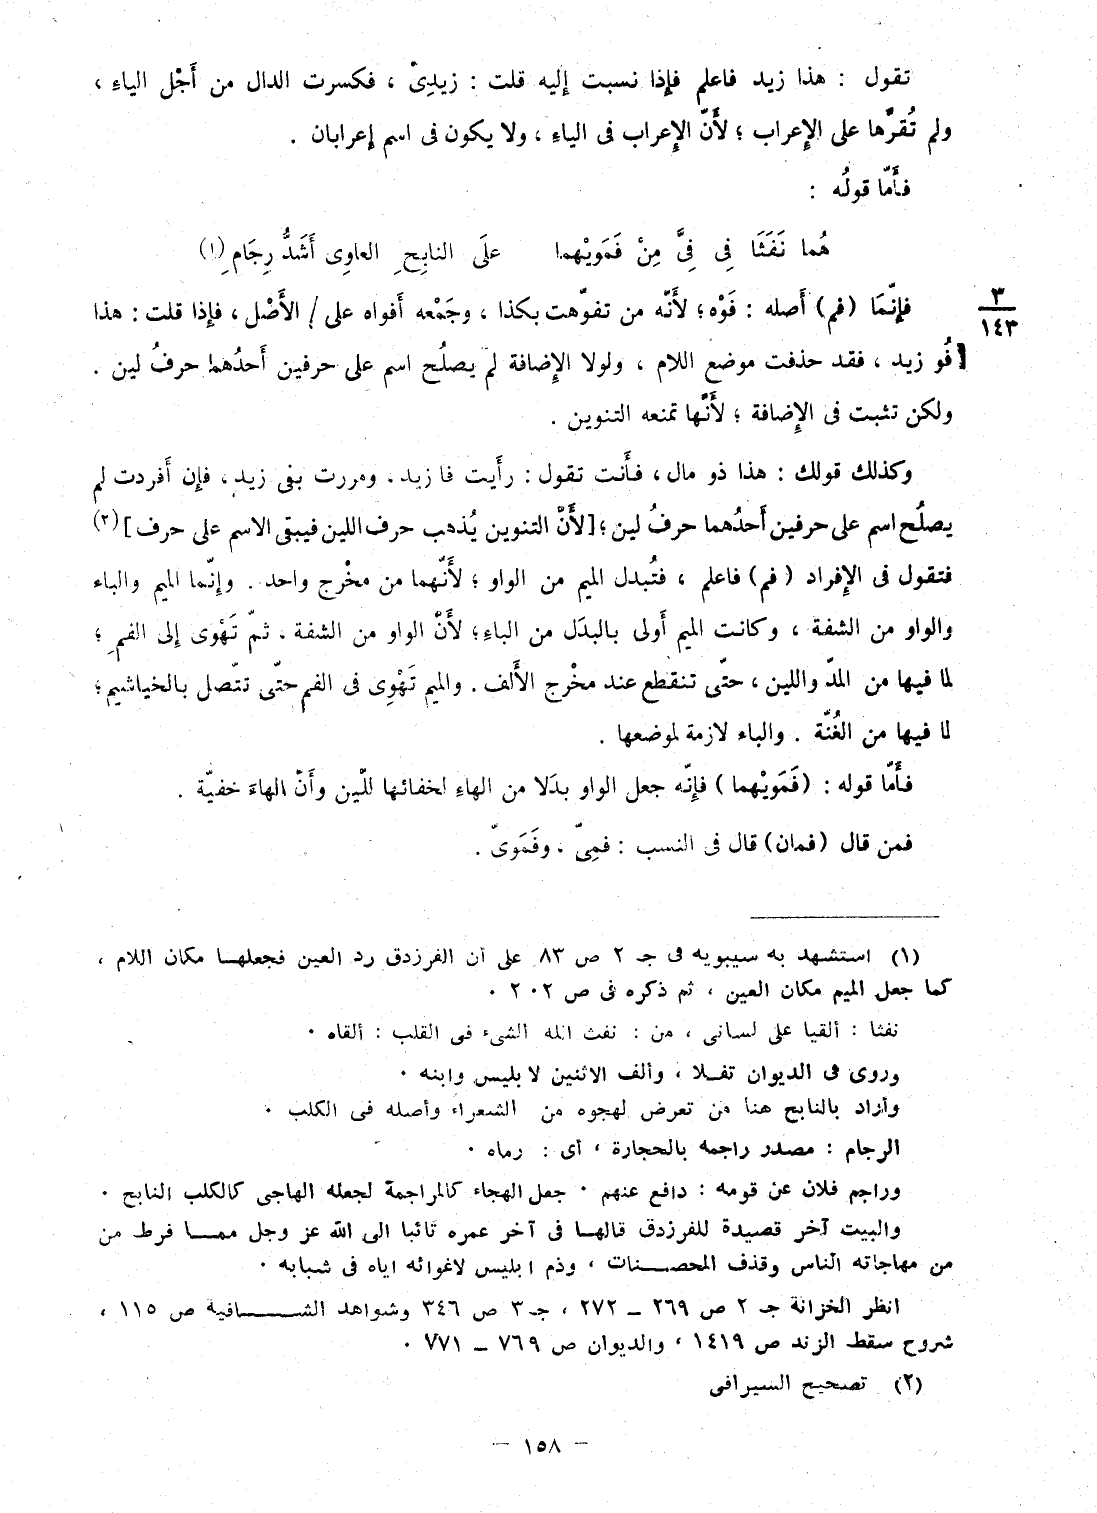 تقول : هذا زيد فاعلم فإذا نسبت إليه قلت : زيدِىّ ، فكسرت الدال من أَجْل الياءِ ،
ولم تُقرَّها على الإِعراب ؛ لأَنّ الإِعراب فى الياءِ ، ولا يكون فى اسم إعرابان .
فأَمّا قولُه :
هُما نَفَثَا فِى فِىَّ مِنْ فَمَوَيْهِما   علَى النابِحِ العاوِى أَشَدُّ رِجَامِ (١)
٣
١٤٣
فإنَّمَا (فم) أصله : فَوْه؛ لأَنَّه من تفوّهت بكذا ، وجَمْعه أفواه على / الأَصْل ، فإذا قلت : هذا
فُو زيد ، فقد حذفت موضع اللام ، ولولا الإِضافة لم يصلُح اسم على حرفين أَحدُهما حرفُ لين .
ولكن تثبت فى الإِضافة ؛ لأَنَّها تمنعه التنوين .
وكذلك قولك : هذا ذو مال ، فأَنت تقول : رأَيت فا زيد . ومررت بفى زيد ، فإِن أَفردت لم
يصلُح اسم على حرفين أَحدُهما حرفُ لين ؛ [لأَنَّ التنوين يُذهب حرف اللين فيبقى الاسم على حرف] (٢)
فتقول فى الإِفراد (فم) فاعلم ، فتُبدل الميم من الواو ؛ لأَنَّهما من مخْرج واحد . وإنَّما الميم والباء
والواو من الشفة ، وكانت الميم أولى بالبدَل من الباءِ؛ لأَنَّ الواو من الشفة ، ثمّ تَهْوى إلى الفمِ ؛
لما فيها من المدّ واللين ، حتّى تنقطع عند مخْرج الأَلف . والميم تَهْوِى فى الفم حتّى تتّصل بالخياشيم ؛
لما فيها من الغُنَّة . والباء لازمة لموضعها .
فأَمّا قوله : (فَمَوَيْهما) فإِنَّه جعل الواو بدَلا من الهاءِ لخفائها للّين وأَنّ الهاءَ خفيّة .
فمن قال (فمان) قال فى النسب : فمِىّ ، وفَمَوىّ .
(١) استشهد به سيبويه فى جـ ٢ ص ٨٣ على أن الفرزدق رد العين فجعلهـا مكان اللام ،
كما جعل الميم مكان العين ، ثم ذكره فى ص ٢٠٢ ٠
نفثا : ألقيا على لسانى ، من : نفث الله الشىء فى القلب : ألقاه ٠
وروى فى الديوان تفـلا ، وألف الاثنين لابليس وابنه ٠
وأراد بالنابح هنا من تعرض لهجوه من الشعراء وأصله فى الكلب ٠
الرجام : مصدر راجمه بالحجارة ، أى : رماه ٠
وراجم فلان عن قومه : دافع عنهم ٠ جعل الهجاء كالمراجمة لجعله الهاجى كالكلب النابح ٠
والبيت آخر قصيدة للفرزدق قالهـا فى آخر عمره تائبا الى الله عز وجل ممـا فرط من
من مهاجاته الناس وقذف المحصـنات ، وذم ابليس لاغوائه اياه فى شبابه ٠
انظر الخزانة جـ ٢ ص ٢٦٩ ـ ٢٧٢ ، جـ ٣ ص ٣٤٦ وشواهد الشـافية ص ١١٥ ،
شروح سقط الزند ص ١٤١٩ ، والديوان ص ٧٦٩ ـ ٧٧١ ٠
(٢) تصحيح السيرافى
– ١٥٨ –